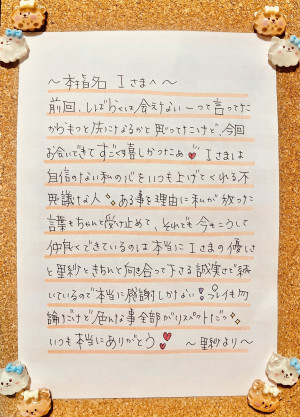 〜本指名 Iさまへ〜
前回、しばらくは会えないーって言ってた
からもっと先になるかと思ってたけど、今回
お会いできてすごく喜しかったぁ♥ Iさまは
自信のない私の心をいつも上げてくれる不
思議な人✨ある事を理由に私が放った
言葉もちゃんと受け止めて、それでも今もこうして
仲良くできているのは本当にIさまの優しさ
と里紗ときちんと向き合って下さる誠実さで続
いているので本当に感謝しかない!プレイも勿
論だけど色んな事全部がリスペクトだっ✨
いつも本当にありがとう♥ 〜里紗より〜